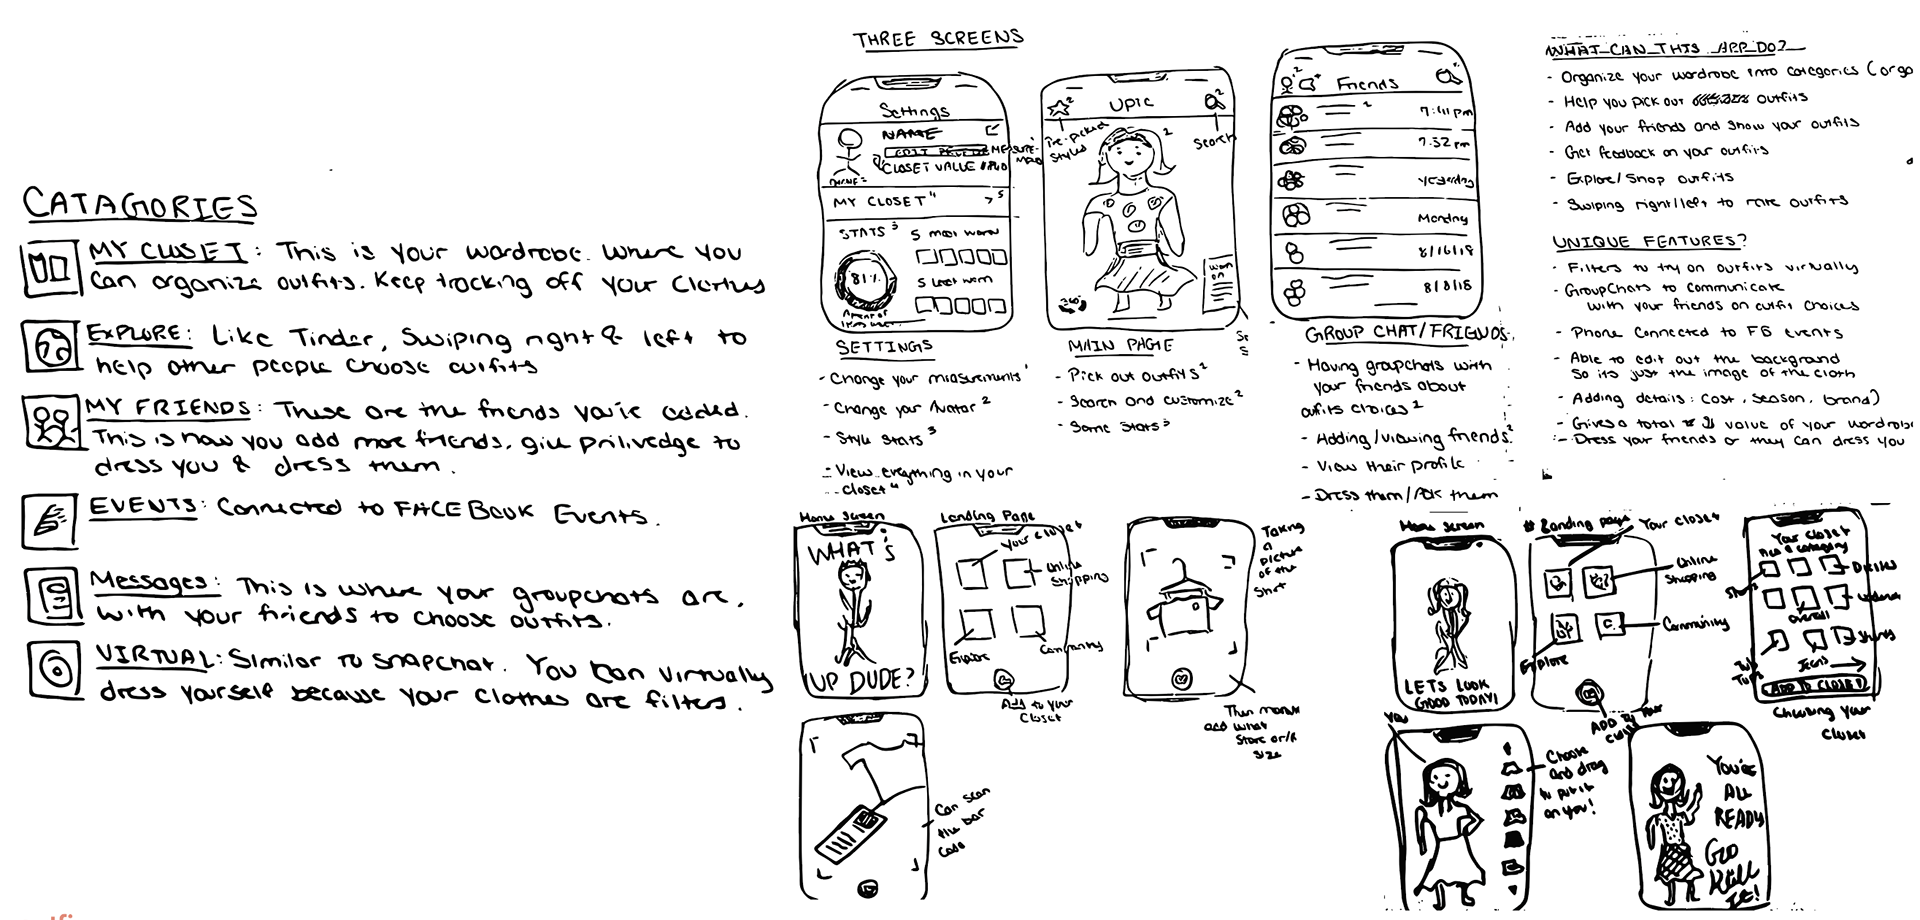 CATAGORIES
MY CLOSET: This is your wardrobe. Where you
can organize outfits. Keep tracking off your clothes
EXPLORE: Like Tinder, Swiping right & left to
help other people choose outfits
MY FRIENDS: These are the friends you've added.
This is how you add more friends, give privilvedge to
dress you & dress them.
EVENTS: Connected to FACEBOOK Events.
Messages: This is where your groupchats are,
with your friends to choose outfits.
VIRTUAL: Similar to snapchat. You can virtually
dress yourself because your clothes are filters.
THREE SCREENS
Settings
NAME
CLOSET VALUE
MY CLOSET 4 > 5
STATS 3
5 most worn
81%
5 least worn
SETTINGS
- Change your measurements 1
- Change your Avatar 2
- Style Stats 3
- View everything in your
closet 4
UPIC
Pre-picked
styles
Search
worn
on
360°
MAIN PAGE
- Pick out outfits 2
- Search and customize 2
- Some Stats 3
Friends
7:41 pm
7:32 pm
Yesterday
Monday
8/16/18
8/8/18
GROUP CHAT/FRIENDS
- Having groupchats with
your friends about
outfits choices 2
- Adding/viewing friends 2
- View their profile
- Dress them/Ask them
WHAT CAN THIS APP DO?
- Organize your wardrobe into categories (orga
- Help you pick out outfits
- Add your friends and show your outfits
- Get feedback on your outfits
- Explore/Shop outfits
- Swiping right/left to rate outfits
UNIQUE FEATURES?
- Filters to try on outfits virtually
- GroupChats to communicate
with your friends on outfit choices
- Phone Connected to FB events
- Able to edit out the background
So its just the image of the cloth
- Adding details: Cost, season, brand)
- Gives a total value of your wardrobe
- Dress your friends or they can dress you
Home Screen
WHAT'S
UP DUDE?
Landing Page
Your closet
Online
Shopping
Explore
Community
Add to your
Closet
Taking
a
picture
of the
Shirt
Then manual
add what
Store or/&
size
Can scan
the bar
code
Home Screen
LETS LOOK
GOOD TODAY!
Landing page
Your closet
Online
Shopping
Community
Explore
ADD to your
Closet
Your closet
Pick a category
Dresses
overall
Skirts
Jeans
ADD TO CLOSET
Choosing your
closet
You
Choose
and drag
to put it
on you!
You're
ALL
READY
Go
Kill
IT!